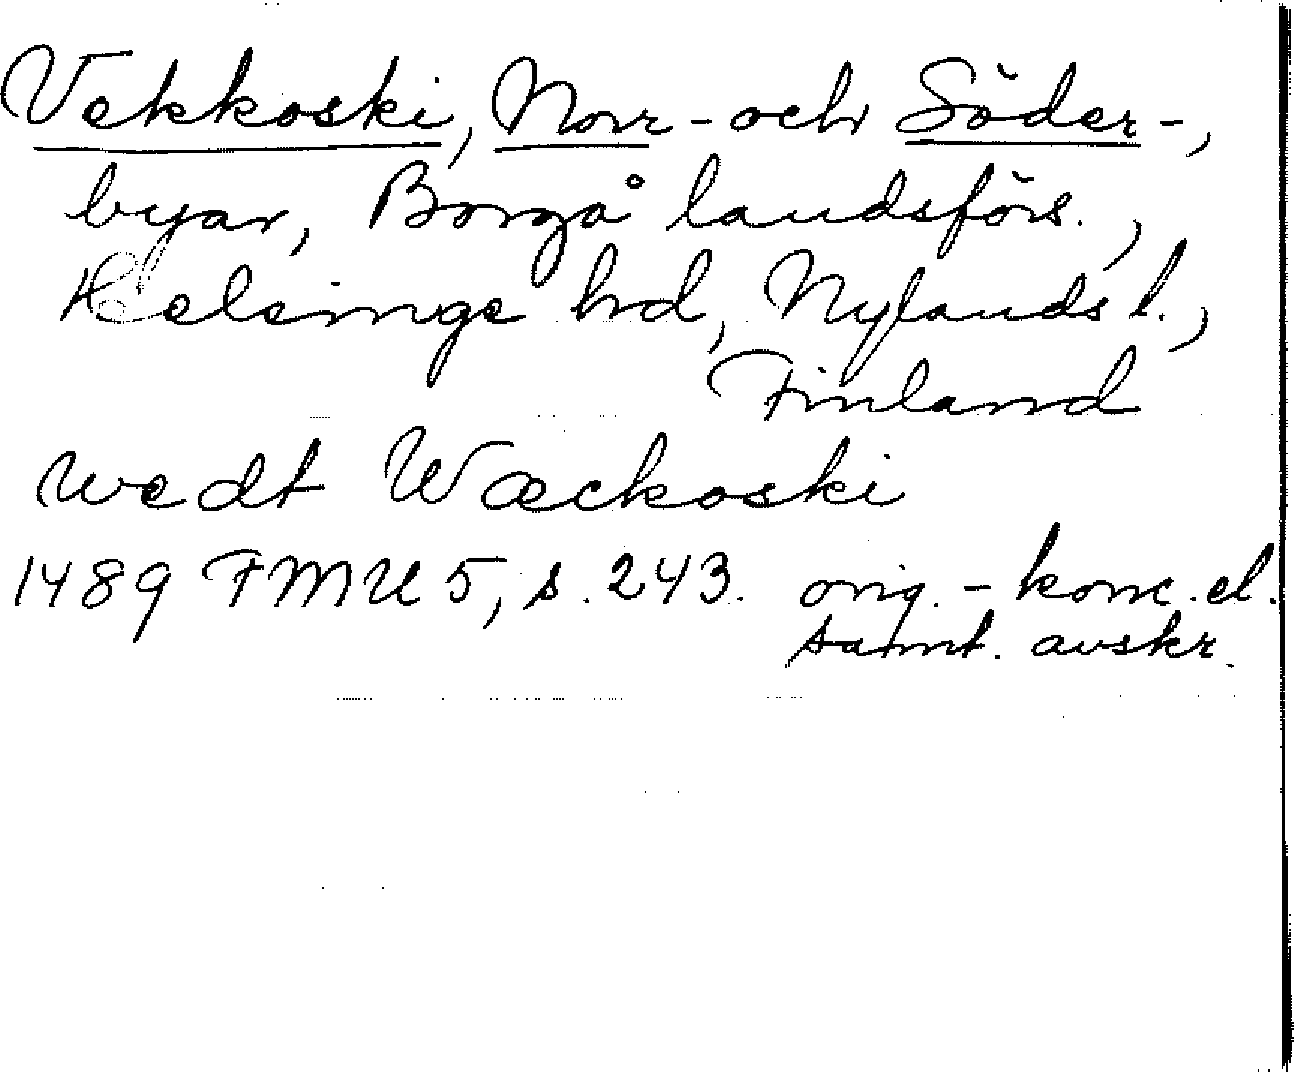 Vekkoski, Norr- och Söder-,
byar, Borgå landsförs.,
Helsinge hd, Nylands l.,
Finland
wedt Wæckoski
1489 FMU 5, s. 243. orig.-konc. el.
samt. avskr.